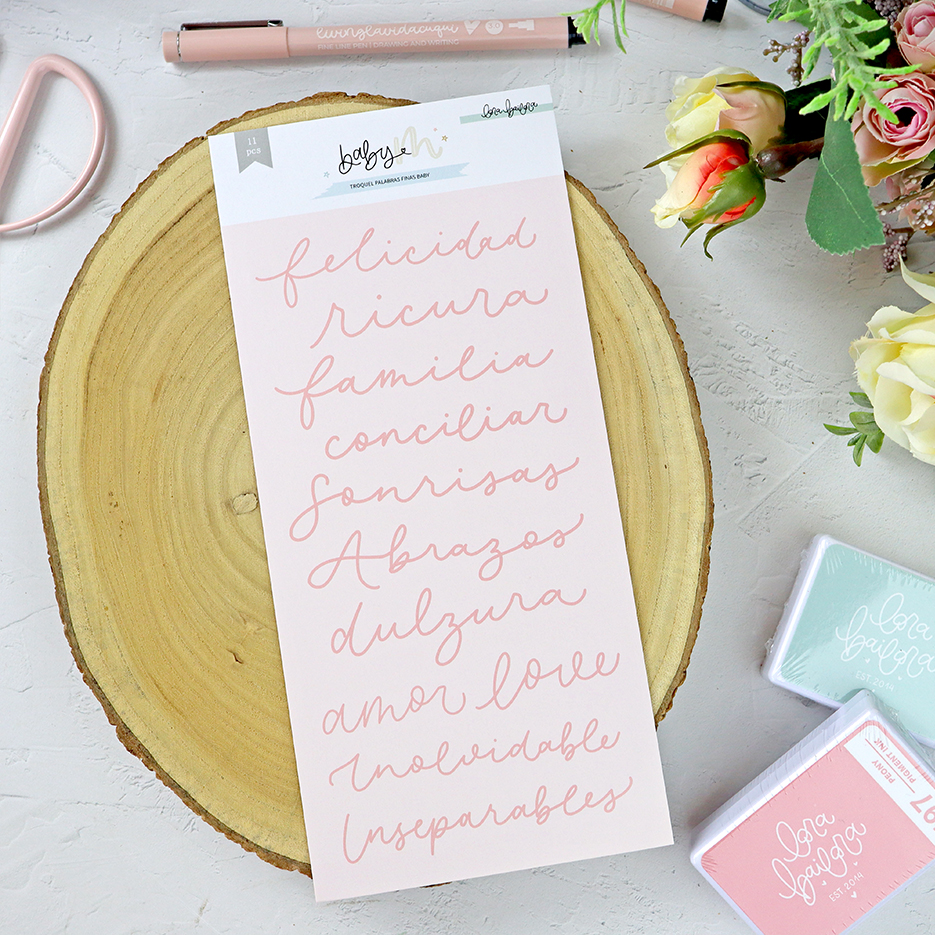 livinglavidaaqui
FINE LINE PEN | DRAWING AND WRITING
11
pcs
lora bailora
baby
TROQUEL PALABRAS FINAS BABY
felicidad
ricura
familia
conciliar
Sonrisas
Abrazos
dulzura
amor love
Inolvidable
Inseparables
lora
bailora
EST. 2014
PEONY
PIGMENT INK
97
lora
bailora
EST. 2014